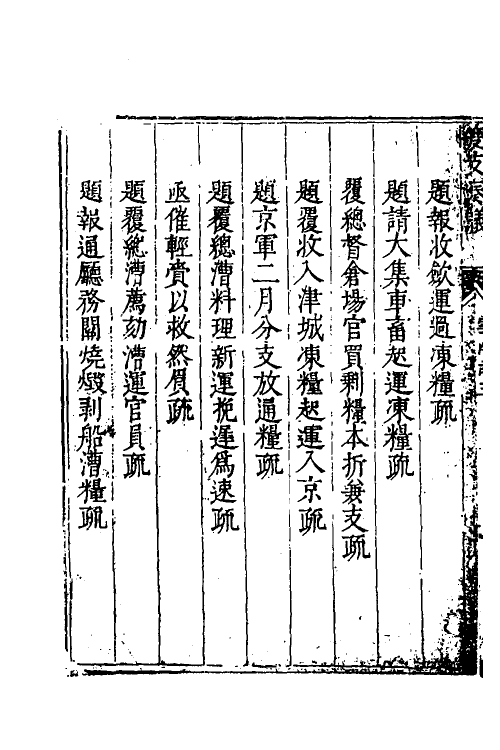 題報收飲運過凍糧疏
題請大集車畜起運凍糧疏
覆總督倉場官買剩糧本折兼支疏
題覆收入津城凍糧起運入京疏
題京軍二月分支放通糧疏
題覆總漕料理新運挽遲爲速疏
亟催輕賫以救然眉疏
題覆總漕薦劾漕運官員疏
題報通廳務關燒燬剥船漕糧疏